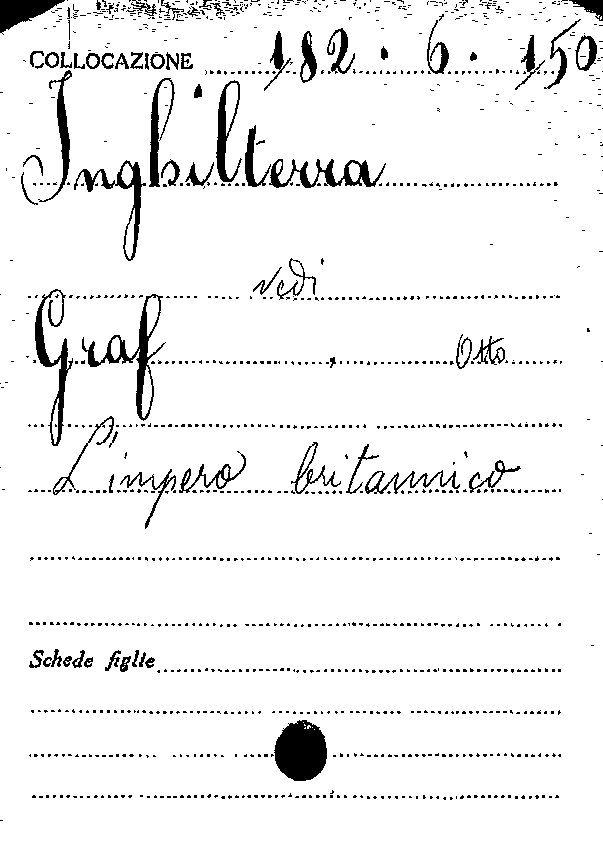 COLLOCAZIONE 182.6.150
Inghilterra
vedi
Graf Otto
L'impero britannico
Schede figlie